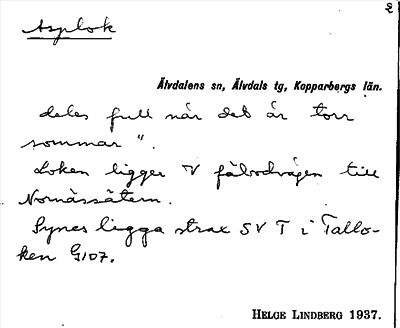 2
Asplok
Älvdalens sn, Älvdals tg, Kopparbergs län.
deles full når det är torr
sommar".
Loken ligger V fäbodvägen till
Nornässätern.
Synes ligga strax SV T i Tallo-
ken G107.
HELGE LINDBERG 1937.